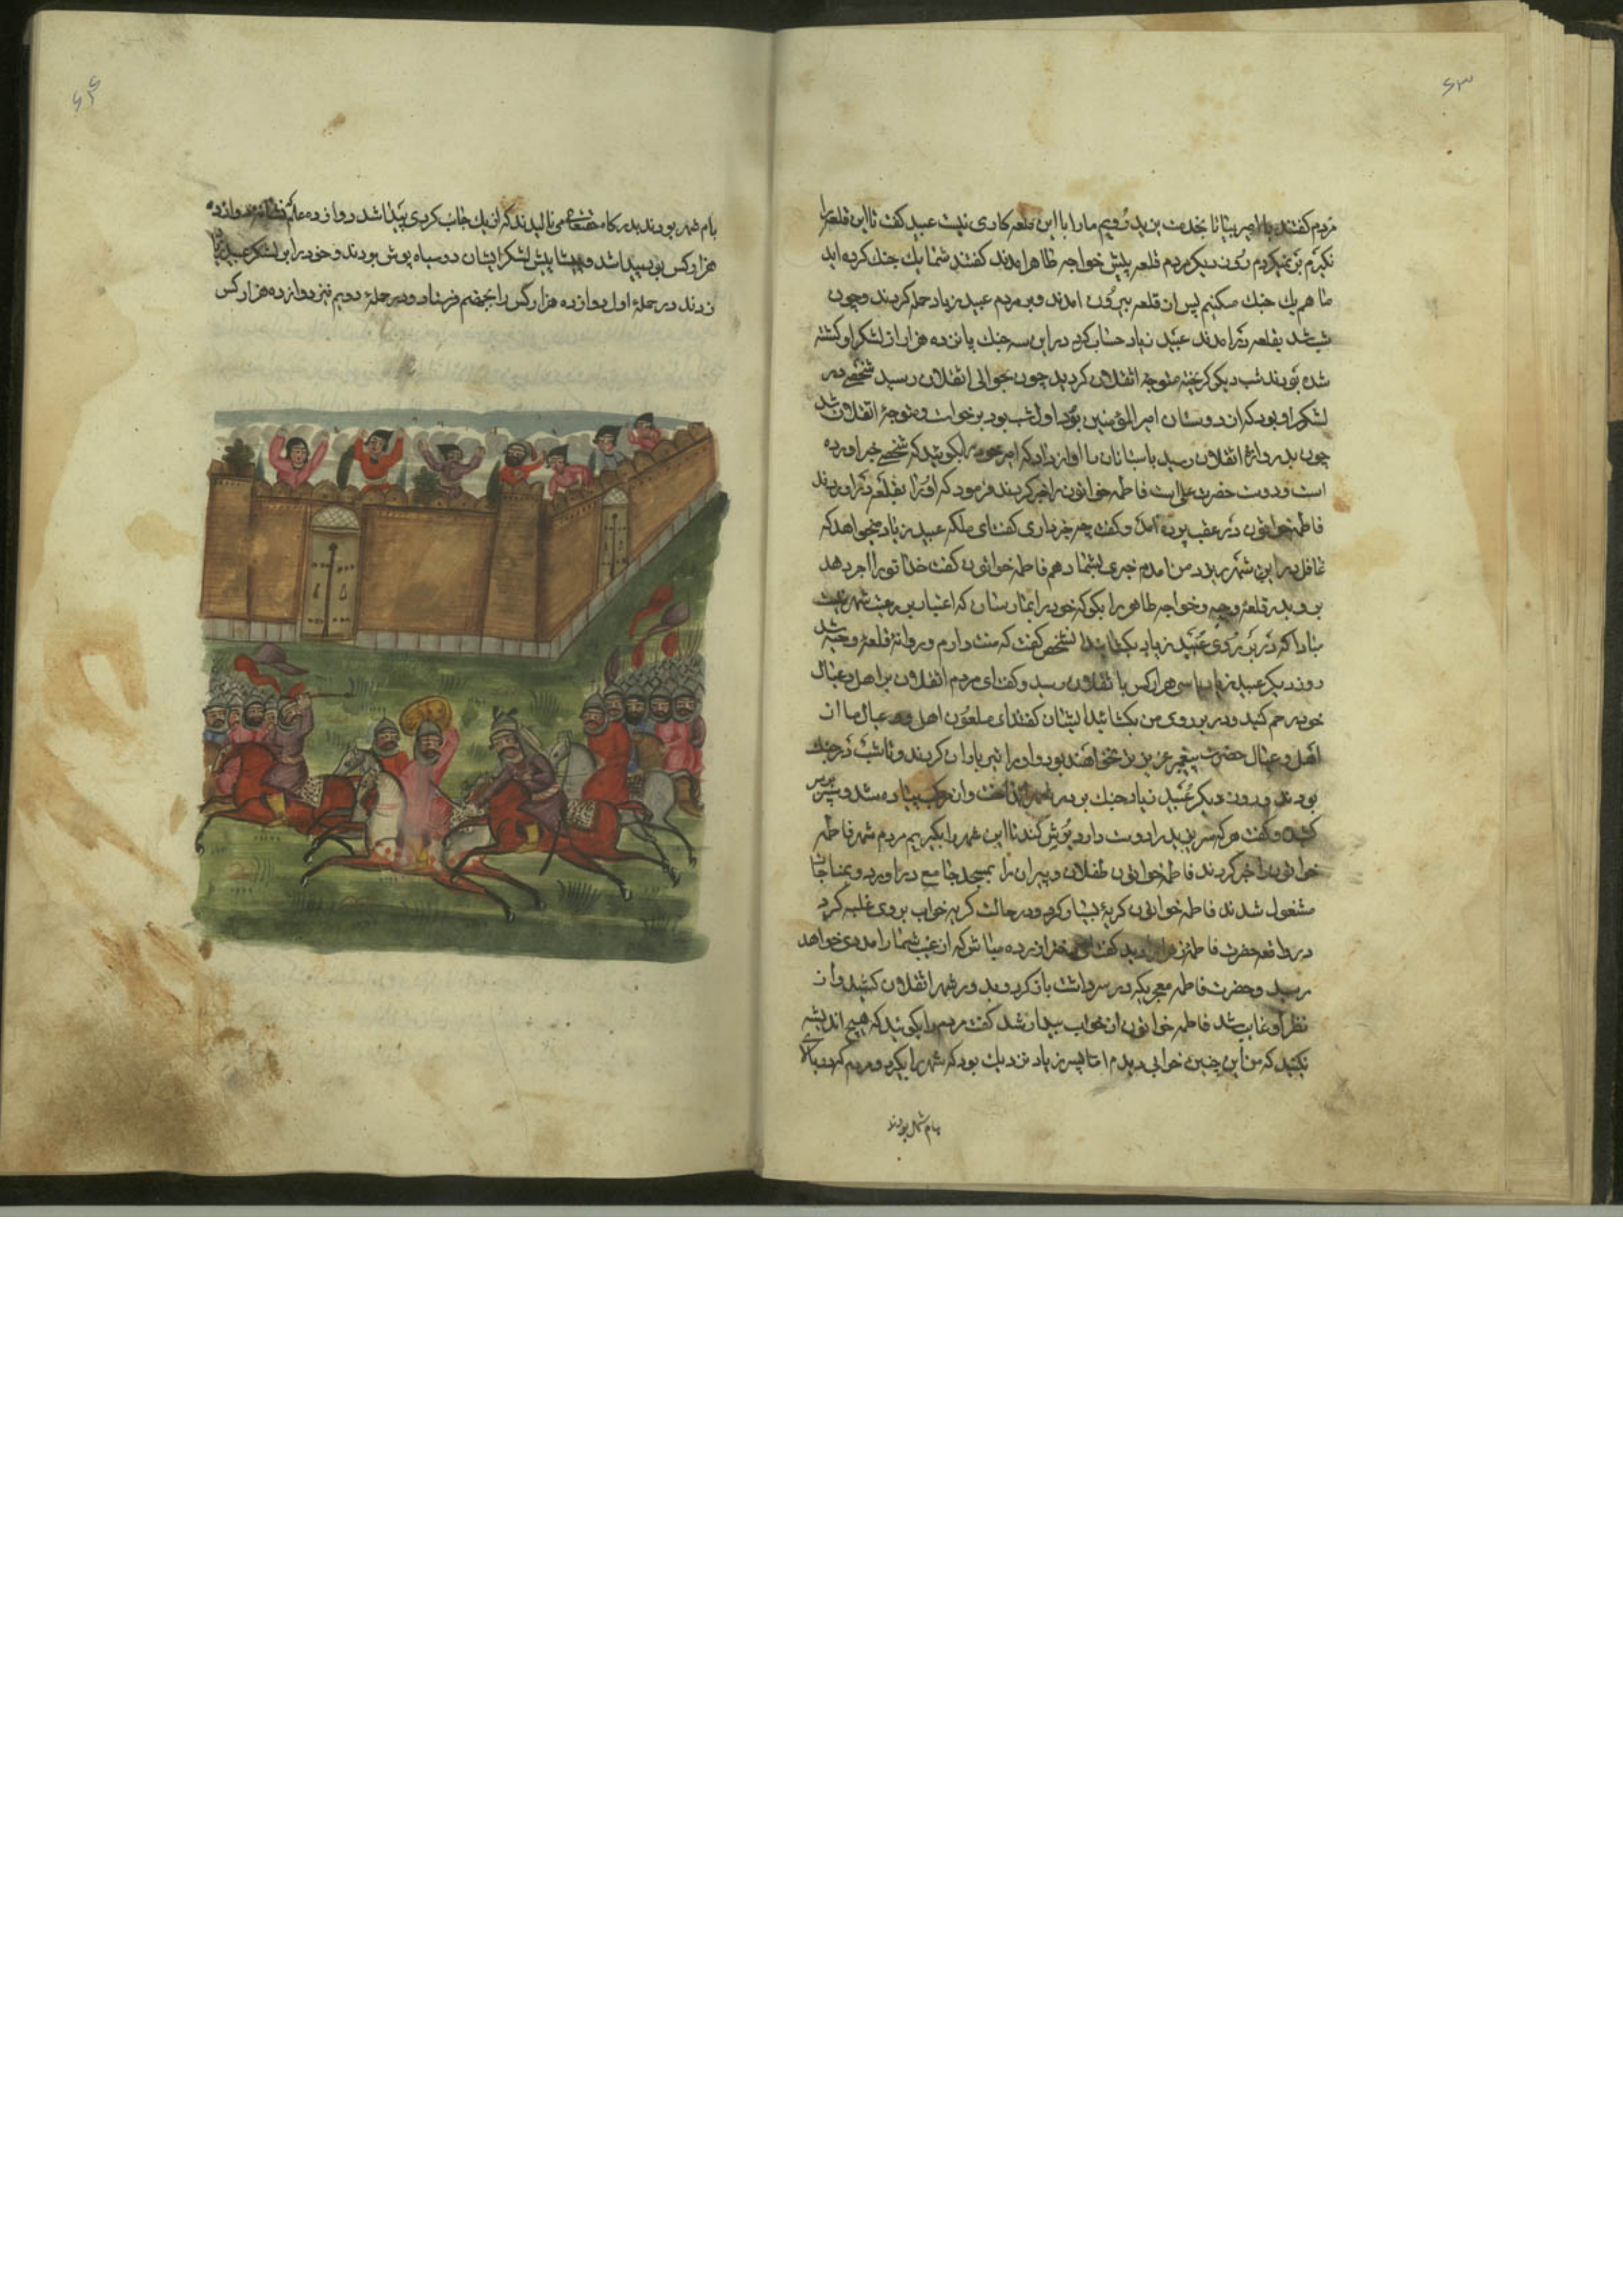 ۶۳
مردم کفتند یا امیر بیا تا بخدمت یزید رویم مارا با این قلعه کاری نیست عبید کفت تا این قلعه را
نکیرم بر نمیکردم روز دیکر مردم قلعه پیش خواجه طاهر امدند کفتند شما یك جنك کرده اید
ما هم یك جنك میکنیم پس از قلعه بیرون امدند و بر مردم عبید زیاد حمله کردند و چون
شب شد بقلعه در امدند عبید زیاد حساب کرد در این سه جنك پانزده هزار از لشکر او کشته
شده بودند شب دیکر کریخته متوجه اثقلان کردید چون بحوالی اثقلان رسید شخصی در
لشکر او بود که از دوستان امیر المؤمنین بود اول شب بود برخواست و متوجه اثقلان شد
چون بدروازه اثقلان رسید پاسبانان را اواز داد که امیر خود را بکوئید که شخصی خبر اورده
است و دوست حضرت علی است فاطمه خواتون را خبر کردند فرمود که او را بقلعه در اوردند
فاطمه خواتون در عقب پرده امد و کفت چه خبر داری کفت ای ملکه عبید زیاد میخواهد که
غافل در این شهر ریزد من امدم خبری بشما دهم فاطمه خواتون کفت خدا تورا اجر دهد
برو بدر قلعه وجیه و خواجه طاهر را بکو که خود را بما رسان که اعتبار بر رعیت شهر نیست
مبادا که در بر روی عبید زیاد بکشایند انشخص کفت که منت دارم و روانه قلعه وجیه شد
روز دیکر عبید زیاد با سی هزار کس باثقلان رسید و کفت ای مردم اثقلان بر اهل و عیال
خود رحم کنید و در بر روی من بکشائید ایشان کفتند ای ملعون اهل و عیال ما از
اهل و عیال حضرت پیغمبر عزیزتر نخواهند بود و او را تیر باران کردند و تا شب در جنك
بودند و روز دیکر عبید زیاد جنك در انداخت و از مرکب پیاده شد و سپر بر سر
کشید و کفت هر که سر یزید را دوست دارد یورش کند تا این شهر را بکیریم مردم شهر فاطمه
خواتون را خبر کردند فاطمه خواتون طفلان و پیران را بمسجد جامع در اورد و بمناجات
مشغول شدند فاطمه خواتون کریه بسیار کرد و در حالت کریه خواب بر وی غلبه کرد
در واقعه حضرت فاطمه زهرا را دید کفت ای دختر ازرده مباش که از غیب شما را مددی خواهد
رسید و حضرت فاطمه معجریکه در سر داشت باز کرد و بدور شهر اثقلان کشید و از
نظر او غایب شد فاطمه خواتون از خواب بیدار شد کفت مردم را بکوئید که هیچ اندیشه
نکنید که من این چنین خوابی دیدم اما پسر زیاد نزدیك بود که شهر را بکیرد و مردم که در بالای
بام شهر بودند
۶۴
بام شهر بودند بدرکاه حقتعالی می نالیدند که از یك جانب کردی پیدا شد دوازده علم نشانه دوازده
هزار کس پدید اشد و پیشاپیش لشکر ایشان دو سیاه پوش بودند و خود را بر لشکر عبید زیاد
زدند در حمله اول دوازده هزار کس را بجهنم فرستاد و در حمله دویم نیز دوازده هزار کس